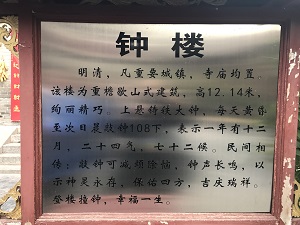 钟楼
明清，凡重要城镇，寺庙均置。
该楼为重檐歇山式建筑，高12.14米，
绚丽精巧。上悬铸铁大钟，每天黄昏
至次日晨敲钟108下，表示一年有十二
月，二十四气，七十二候。民间相
传：敲钟可减烦除恼，钟声长鸣，以
示神灵永存，保佑四方，吉庆瑞祥。
登楼撞钟，幸福一生。